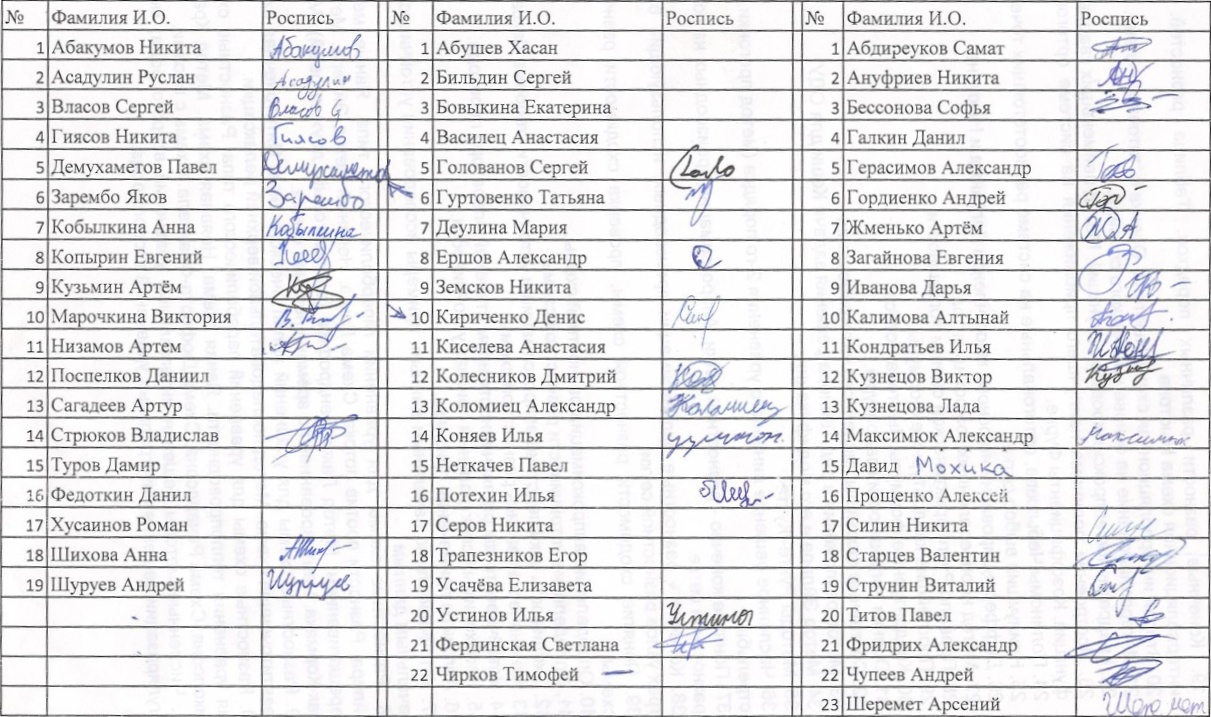 № Фамилия И.О. Роспись № Фамилия И.О. Роспись № Фамилия И.О. Роспись
1 Абакумов Никита Абакумов 1 Абушев Хасан 1 Абдиреуков Самат
2 Асадулин Руслан Асадулин 2 Бильдин Сергей 2 Ануфриев Никита
3 Власов Сергей Власов С 3 Бовыкина Екатерина 3 Бессонова Софья
4 Гиясов Никита Гиясов 4 Василец Анастасия 4 Галкин Данил
5 Демухаметов Павел Демухаметов 5 Голованов Сергей 5 Герасимов Александр
6 Зарембо Яков Зарембо 6 Гуртовенко Татьяна 6 Гордиенко Андрей
7 Кобылкина Анна Кобылкина 7 Деулина Мария 7 Жменько Артём
8 Копырин Евгений 8 Ершов Александр 8 Загайнова Евгения
9 Кузьмин Артём 9 Земсков Никита 9 Иванова Дарья
10 Марочкина Виктория 10 Кириченко Денис 10 Калимова Алтынай
11 Низамов Артем 11 Киселева Анастасия 11 Кондратьев Илья
12 Поспелков Даниил 12 Колесников Дмитрий 12 Кузнецов Виктор
13 Сагадеев Артур 13 Коломиец Александр Коломиец 13 Кузнецова Лада
14 Стрюков Владислав 14 Коняев Илья 14 Максимюк Александр Максимюк
15 Туров Дамир 15 Неткачев Павел 15 Давид Мохика
16 Федоткин Данил 16 Потехин Илья 16 Прощенко Алексей
17 Хусаинов Роман 17 Серов Никита 17 Силин Никита
18 Шихова Анна 18 Трапезников Егор 18 Старцев Валентин
19 Шуруев Андрей Шуруев 19 Усачёва Елизавета 19 Струнин Виталий
20 Устинов Илья Устинов 20 Титов Павел
21 Фердинская Светлана 21 Фридрих Александр
22 Чирков Тимофей — 22 Чупеев Андрей
23 Шеремет Арсений Шеремет